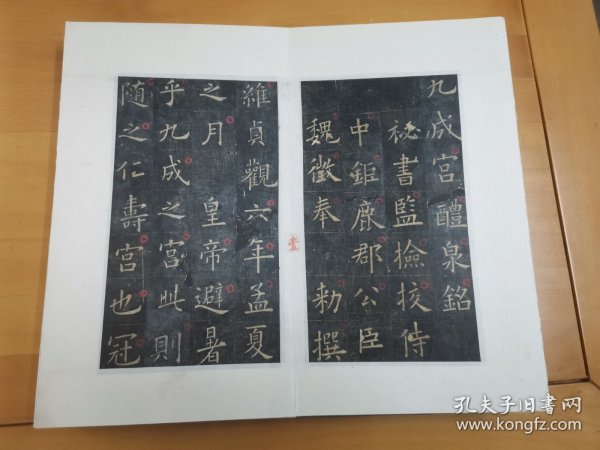 九成宮醴泉銘
祕書監撿挍侍
中鉅鹿郡公臣
魏徵奉 勑撰
維貞觀六年孟夏
之月 皇帝避暑
乎九成之宮此則
随之仁壽宮也冠
壹
孔夫子旧书网
www.kongfz.com